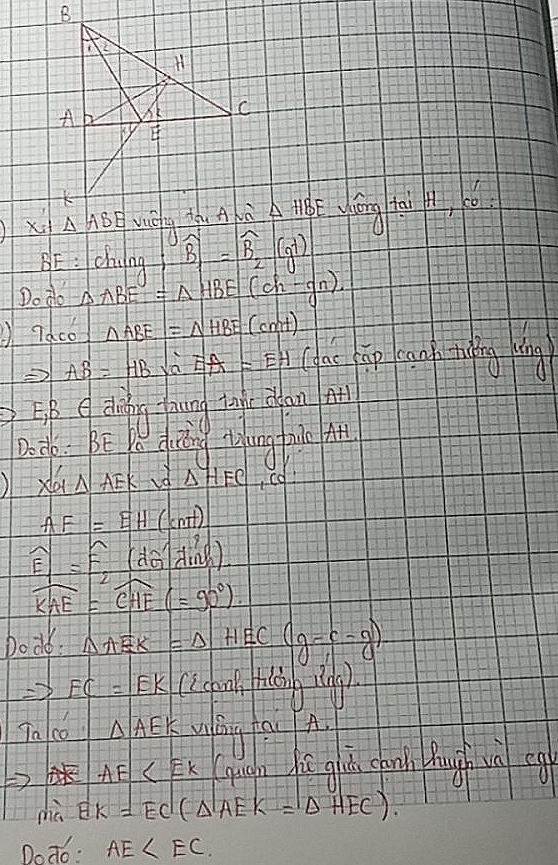 B
1 2
H
A
E
C
K
) Xét Δ ABE vuông tại A và Δ HBE vuông tại H, có:
BE: chung, B̂₁ = B̂₂ (gt)
Do đó Δ ABE = Δ HBE (ch-gn).
) Ta có: ΔABE = ΔHBE (cmt)
=> AB = HB và EA = EH (các cặp cạnh tương ứng)
=> E,B ∈ đường trung trực đoạn AH
Do đó: BE là đường trung trực AH.
) Xét Δ AEK và Δ HEC, có:
AE = EH (cmt)
Ê₁ = Ê₂ (đối đỉnh)
KAE = CHE (= 90°).
Do đó: Δ AEK = Δ HEC (g-c-g)
=> EC = EK (2 cạnh tương ứng).
) Ta có: Δ AEK vuông tại A.
=> AE < EK (quan hệ giữa cạnh huyền và cgv
mà EK = EC (Δ AEK = Δ HEC).
Do đó: AE < EC.